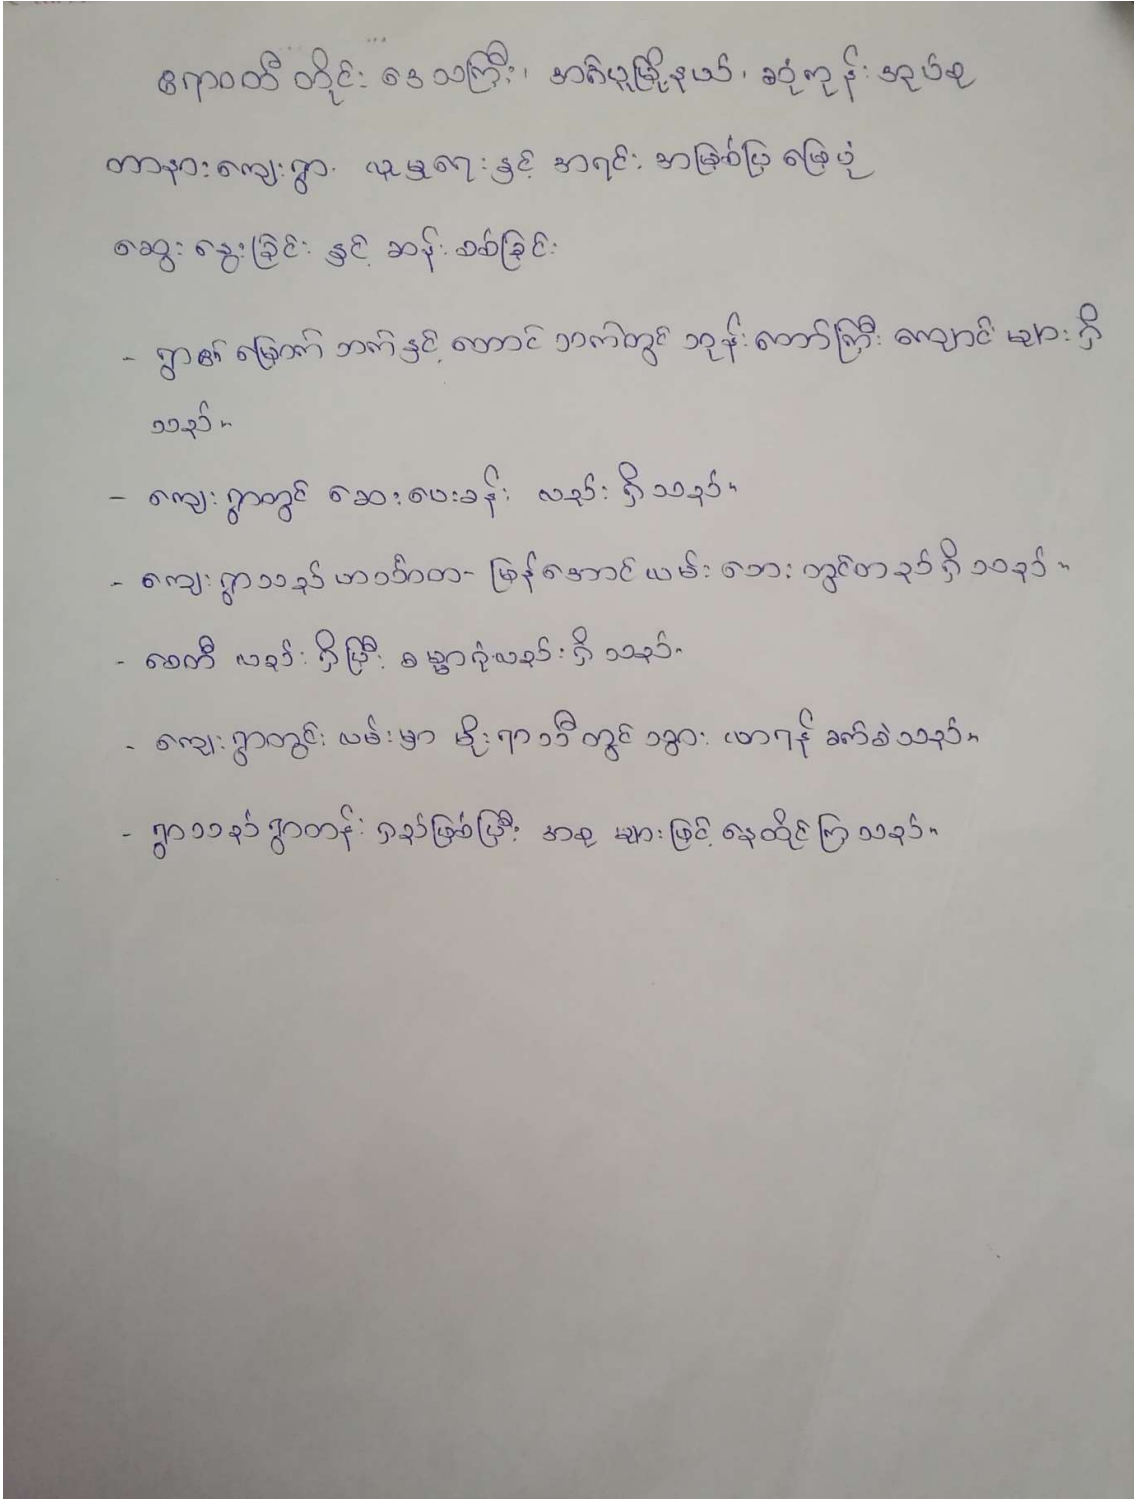 ဧရာဝတီ တိုင်း ဒေသကြီး၊ အင်္ဂပူမြို့နယ်၊ ခုံကုန်း အုပ်စု
တာနားကျေးရွာ လူမှုရေးနှင့် အရင်း အမြစ်ပြ မြေပုံ
ဆွေးနွေးခြင်း နှင့် ဆန်းစစ်ခြင်း
- ရွာ၏ မြောက် ဘက်နှင့် တောင် ဘက်တွင် ဘုန်းတော်ကြီး ကျောင်း များ ရှိ
သည်။
- ကျေးရွာတွင် ဆေးပေးခန်း လည်း ရှိသည်။
- ကျေးရွာသည် ဟင်္သာတ - မြန်အောင် လမ်း ဘေး တွင်တည်ရှိသည်။
- စေတီ လည်း ရှိပြီး ဓမ္မာရုံလည်း ရှိသည်။
- ကျေးရွာတွင်း လမ်းမှာ မိုးရာသီတွင် သွား လာရန် ခက်ခဲသည်။
- ရွာသည် ရွာတန်း ရှည်ဖြစ်ပြီး အစု များဖြင့် နေထိုင်ကြသည်။